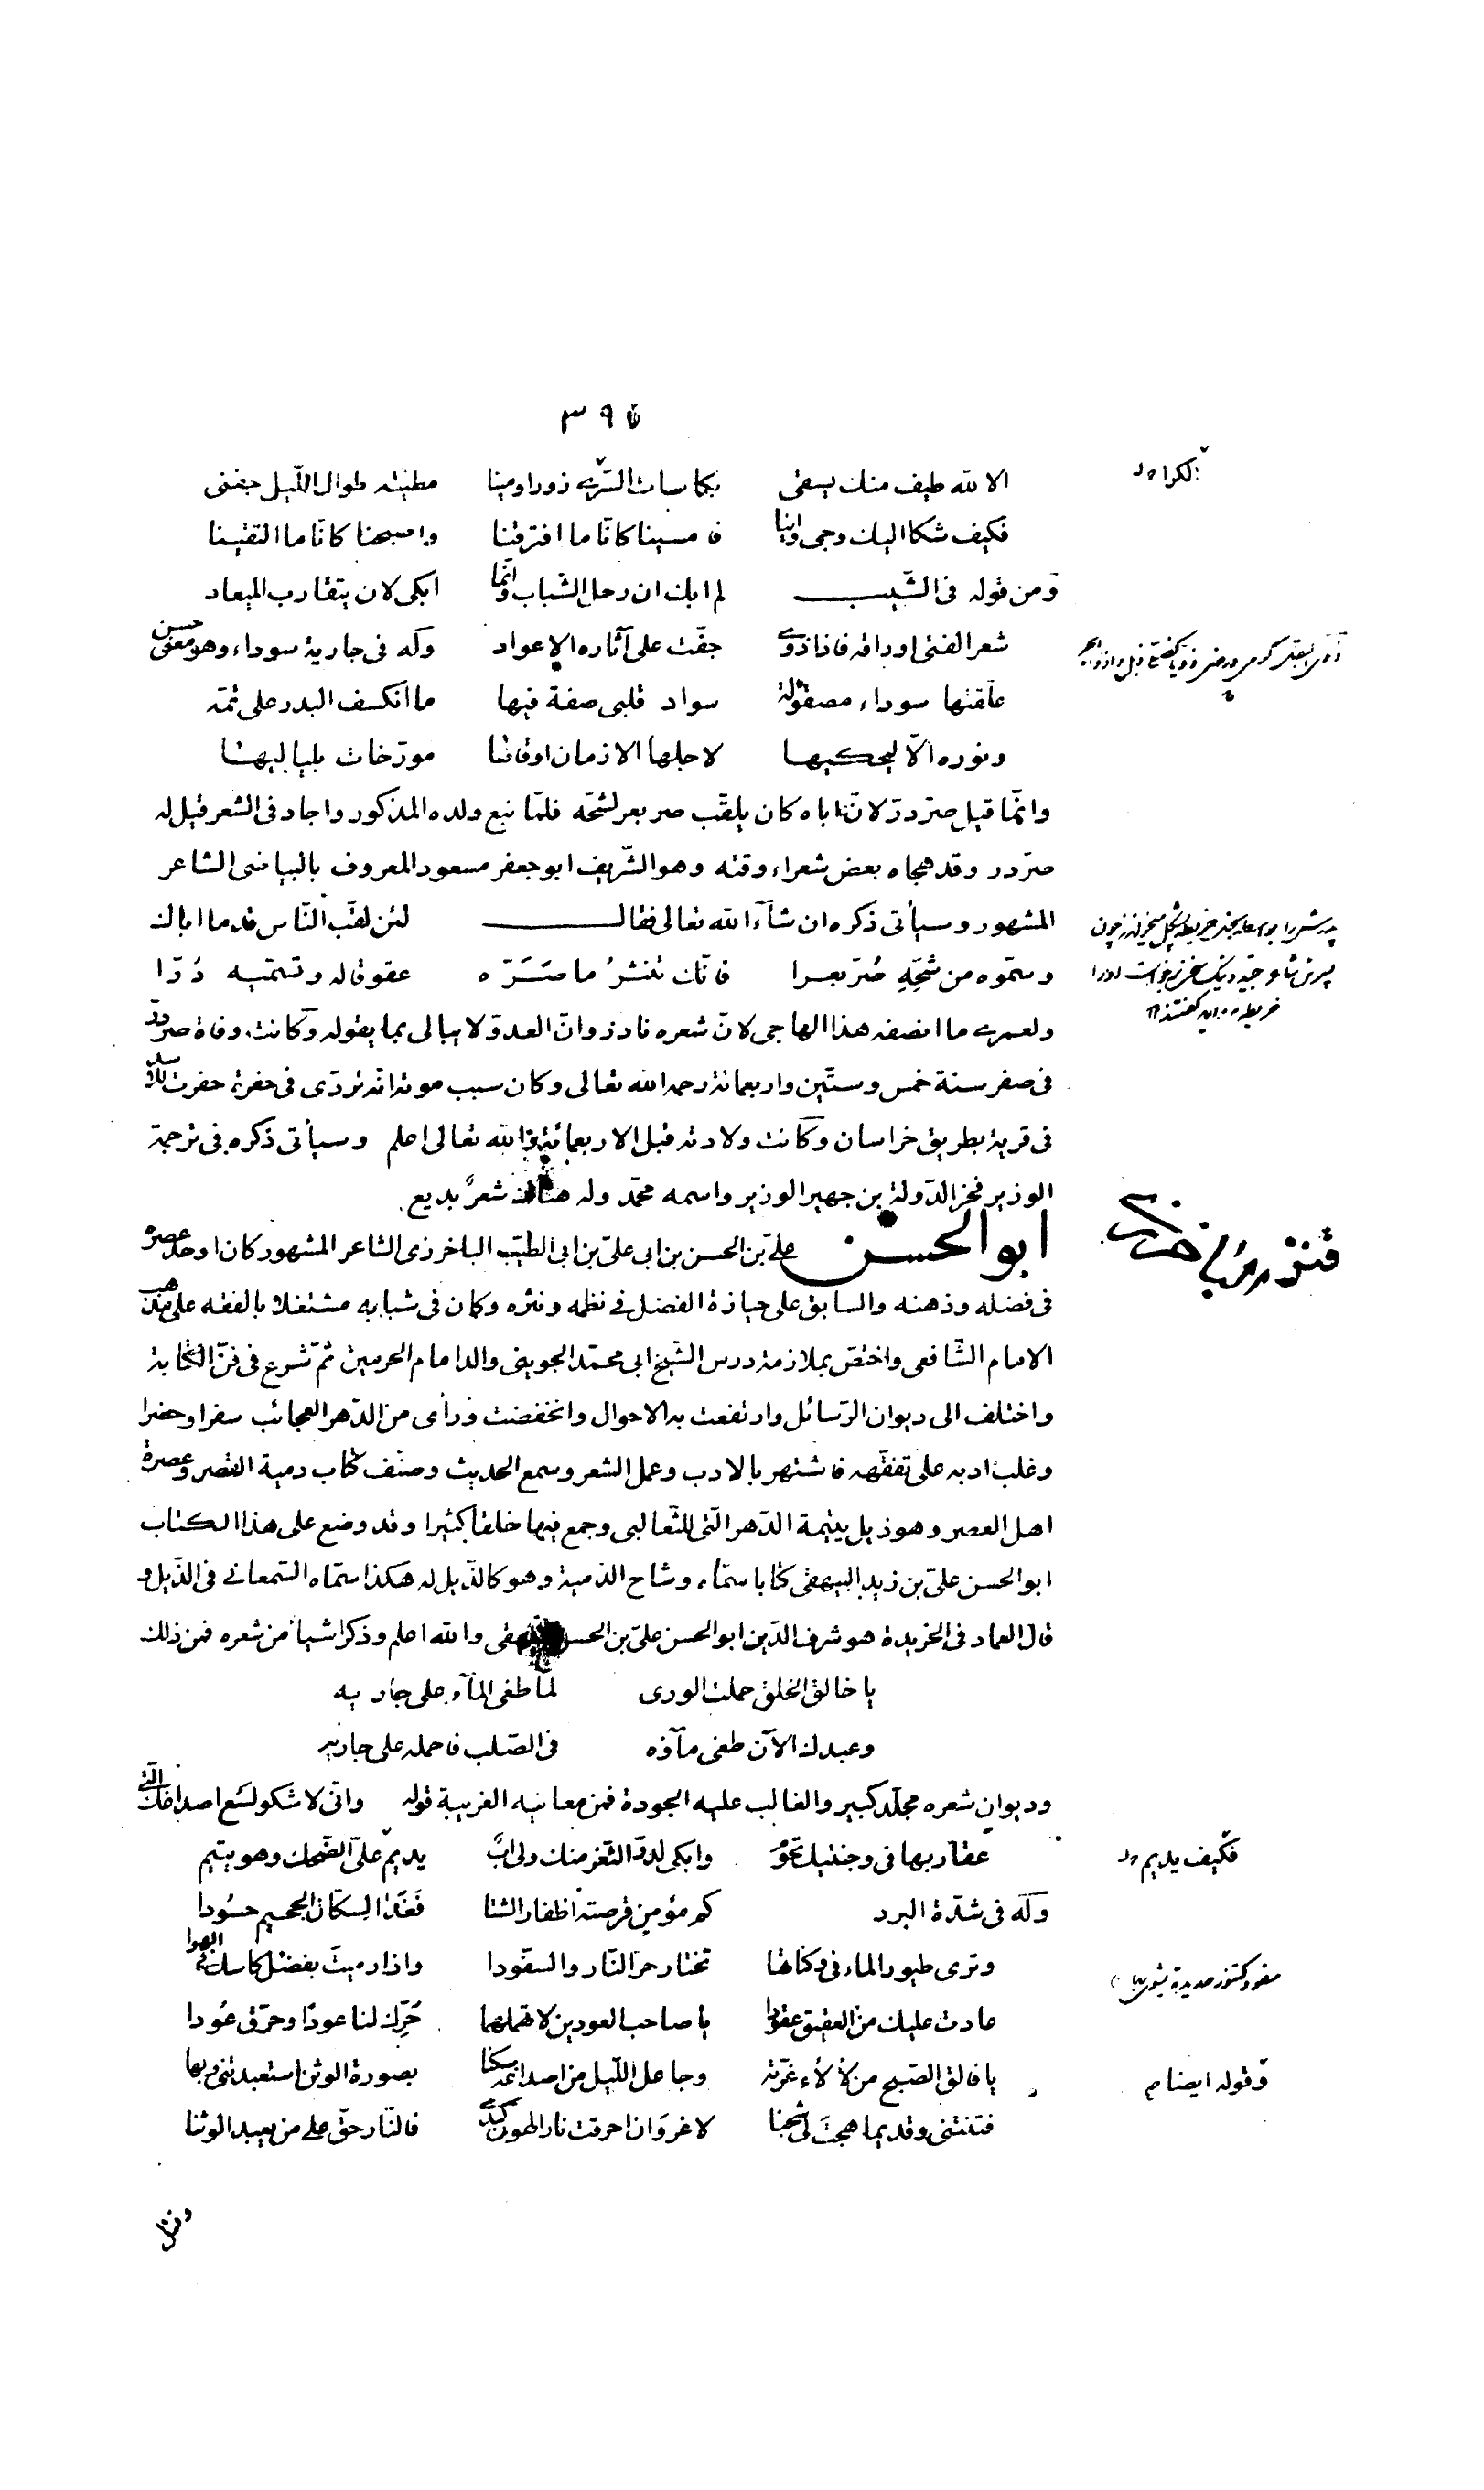 ٣٩٥
الا لله طيف منك يسقى بكاسات السرى زورا ومينا مطيته طوال الليل جفنى
فكيف شكا اليك وجى واينا فامسينا كانّا ما افترقنا واصبحنا كانّا ما التقينا
ومن قوله فى الشّيب لم ابك ان رحل الشباب وانّما ابكى لان يتقارب الميعاد
شعر الفتى اوراقه فاذا ذوى جفّت على آثاره الاعواد وله فى جارية سوداء وهو معنى حسن
علّقتها سوداء مصقولة سواد قلبى صفة فيها ما انكسف البدر على تمّه
ونوره الّا ليحكيها لاجلها الازمان اوقاتها مورّخات بلياليها
وانّما قيل صرّدرّ لانّ اباه كان يلقّب صربعر لشحّه فلمّا نبع ولده المذكور واجاد فى الشعر قيل له
صرّدر وقد هجاه بعض شعراء وقته وهو الشّريف ابو جعفر مسعود المعروف بالبياضى الشاعر
المشهور وسيأتى ذكره ان شآء الله تعالى فقال لئن لقّب النّاس قدما اباك
وسمّوه من شحّه صُرّبعرا فانّك تنثرُ ما صَرَّه عقوقا له وتسمّيه دُرّا
ولعمرى ما انصفه هذا الهاجى لانّ شعره نادر وانّ العدوّ لا يبالى بما يقوله وكانت وفاة صرّدرّ
فى صفر سنة خمس وستّين واربعمائة رحمه الله تعالى وكان سبب موته انّه تردّى فى حفرة حفرت للاسد
فى قرية بطريق خراسان وكانت ولادته قبل الاربعمائة والله تعالى اعلم وسيأتى ذكره فى ترجمة
الوزير فخر الدّولة بن جهير الوزير واسمه محمّد وله هناك شعرٌ بديع
ابو الحسن علىّ بن الحسن بن ابى علىّ بن ابى الطيّب الباخرزى الشاعر المشهور كان اوحد عصره
فى فضله وذهنه والسابق على حيازة الفضل فى نظمه ونثره وكان فى شبابه مشتغلا بالفقه على مذهب
الامام الشّافعى واختصّ بملازمة درس الشّيخ ابى محمّد الجوينى والد امام الحرمين ثمّ شرع فى فنّ الكتابة
واختلف الى ديوان الرّسائل وارتفعت به الاحوال وانخفضت ورأى من الدّهر العجائب سفرا وحضرا
وغلب ادبه على تفقّهه فاشتهر بالادب وعمل الشعر وسمع الحديث وصنّف كتاب دمية القصر وعصرة
اهل العصر وهو ذيل يتيمة الدّهر الّتى للثّعالبى وجمع فيها خلقا كثيرا وقد وضع على هذا الكتاب
ابو الحسن علىّ بن زيد البيهقى كتابا سمّاه وشاح الدّمية وهو كالذّيل له هكذا سمّاه السّمعانى فى الذّيل و
قال العماد فى الخريدة هو شرف الدّين ابو الحسن علىّ بن الحسن البيهقى والله اعلم وذكر اشيأ من شعره فمن ذلك
يا خالق الخلق حملت الورى لمّا طغى المآء على جاريه
وعبدك الآن طغى مآؤه فى الصّلب فاحمله على جاريه
وديوان شعره مجلّد كبير والغالب عليه الجودة فمن معانيه الغريبة قوله وانّى لاشكو لسع اصداغك الّتى
عقاربها فى وجنتيك تحومُ وابكى لدرّ الثّغر منك ولى ابٌ يديمُ علىّ الضّحك وهو يتيم
وله فى شدّة البرد كم مؤمن قرصته اظفار الشتا فَغَدا لسكّان الجحيم حسُودا
وترى طيور الماء فى وكناتها تختار حرّ النّار والسفّودا واذا رميتَ بفضل كاسك فى الهوا
عادت عليك من العقيق عقودا يا صاحب العودين لا تهملهما حَرّك لنا عودًا وحرّق عُودا
فكيف يديم
وقوله ايضا يا فالق الصّبح من لألاء غرّته وجاعل اللّيل من اصداغه سكنا بصورة الوثن استعبدتنى وبها
فتنتنى وقديما هجتَ لى شجنا لا غروَ ان احرقت نار الهوى كبدى فالنّار حقّ على من يعبد الوثنا